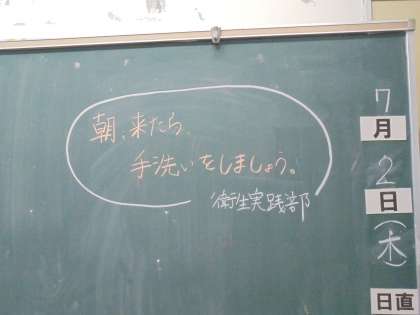 朝、来たら、
手洗いをしましょう。
衛生実践部
7
月
2
日
(木)
日直